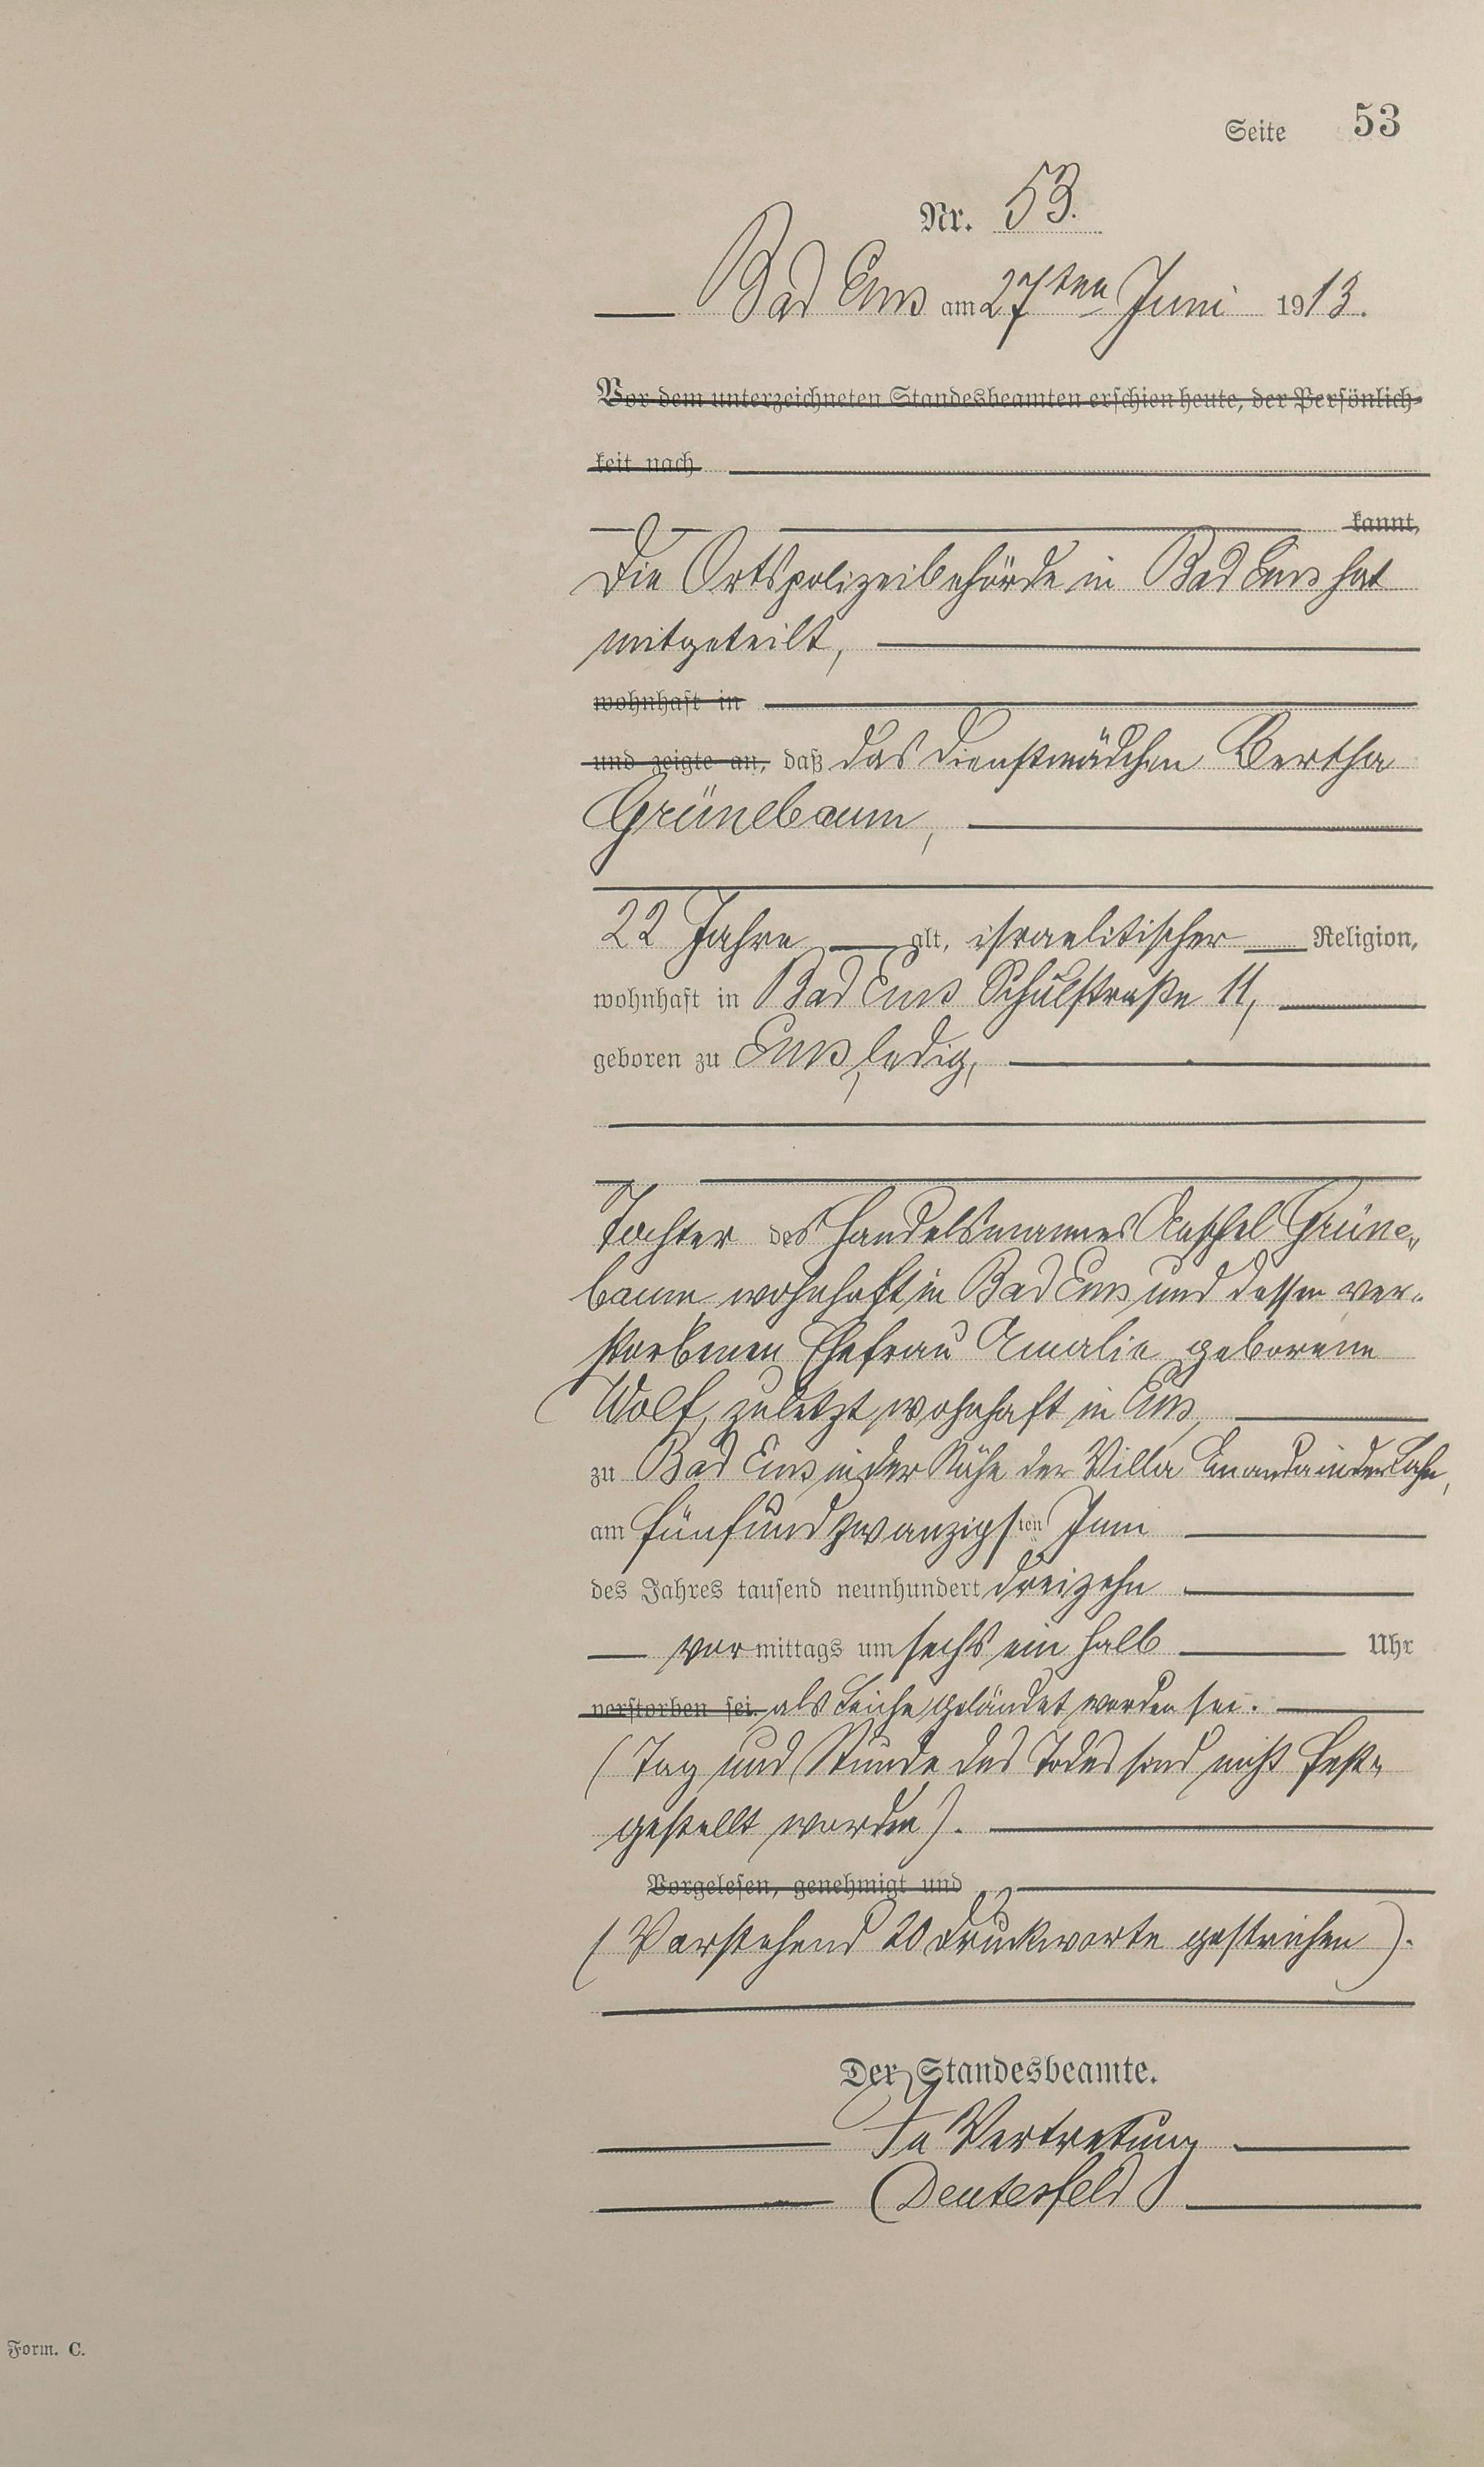 Seite 53
Nr. 53.
Bad Ems am 27ten Juni 1913.
Vor dem unterzeichneten Standesbeamten erschien heute, der Persönlich-
keit nach
kannt,
Die Ortspolizeibehörde in Bad Ems hat
mitgeteilt,
wohnhaft in
und zeigte an, daß das Dienstmädchen Bertha
Grünebaum,
22 Jahre alt, israelitischer Religion,
wohnhaft in Bad Ems Schulstraße 11,
geboren zu Ems, ledig,
Tochter des Handelsmannes Anschel Grüne„
baum wohnhaft in Bad Ems und dessen ver„
storbenen Ehefrau Amalie geborene
Wolf, zuletzt wohnhaft in Ems,
zu Bad Ems in der Nähe der Villa in der Lahn,
am fünfundzwanzigsten Juni
des Jahres tausend neunhundert dreizehn
vormittags um sechs ein halb Uhr
verstorben sei. als Leiche geländet worden sei.
(Tag und Stunde des Todes sind nicht fest„
gestellt worden).
Vorgelesen, genehmigt und
(Vorstehend 20 Druckworte gestrichen).
Der Standesbeamte.
In Vertretung
Deutesfeld
Form. C.